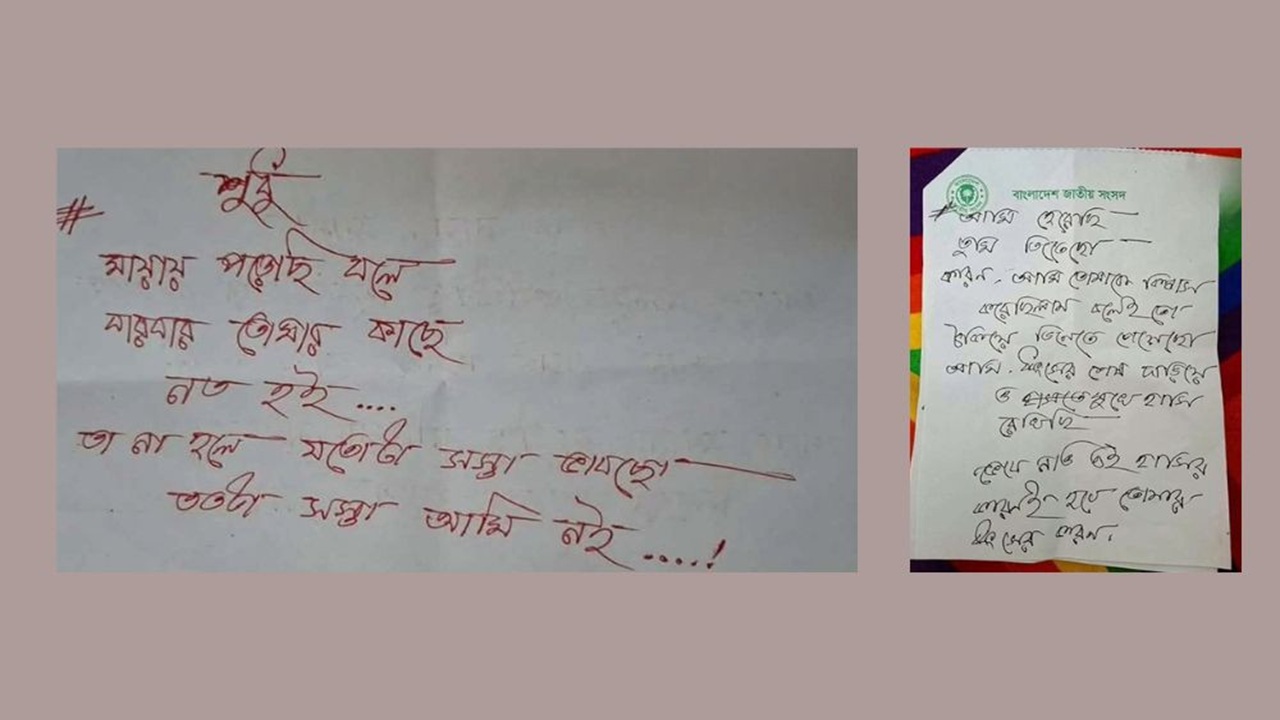 শুধুই
# মায়ায় পড়েছি বলে
বারবার তোমার কাছে
নত হই....
তা না হলে যতোটা সস্তা ভাবছো
ততটা সস্তা আমি নই.....!
বাংলাদেশ জাতীয় সংসদ
# আমি হেরেছি
তুমি জিতেছো
কারন - আমি তোমাকে বিশ্বাস
করেছিলাম বলেই তো
ঠকিয়ে জিততে পেরেছো
আমি ধ্বংসের শেষ দাড়িয়ে
ও মুখে হাসি
রেখেছি
জেনে নাও এই হাসির
কারনই হবে তোমার
ধ্বংসের কারন।